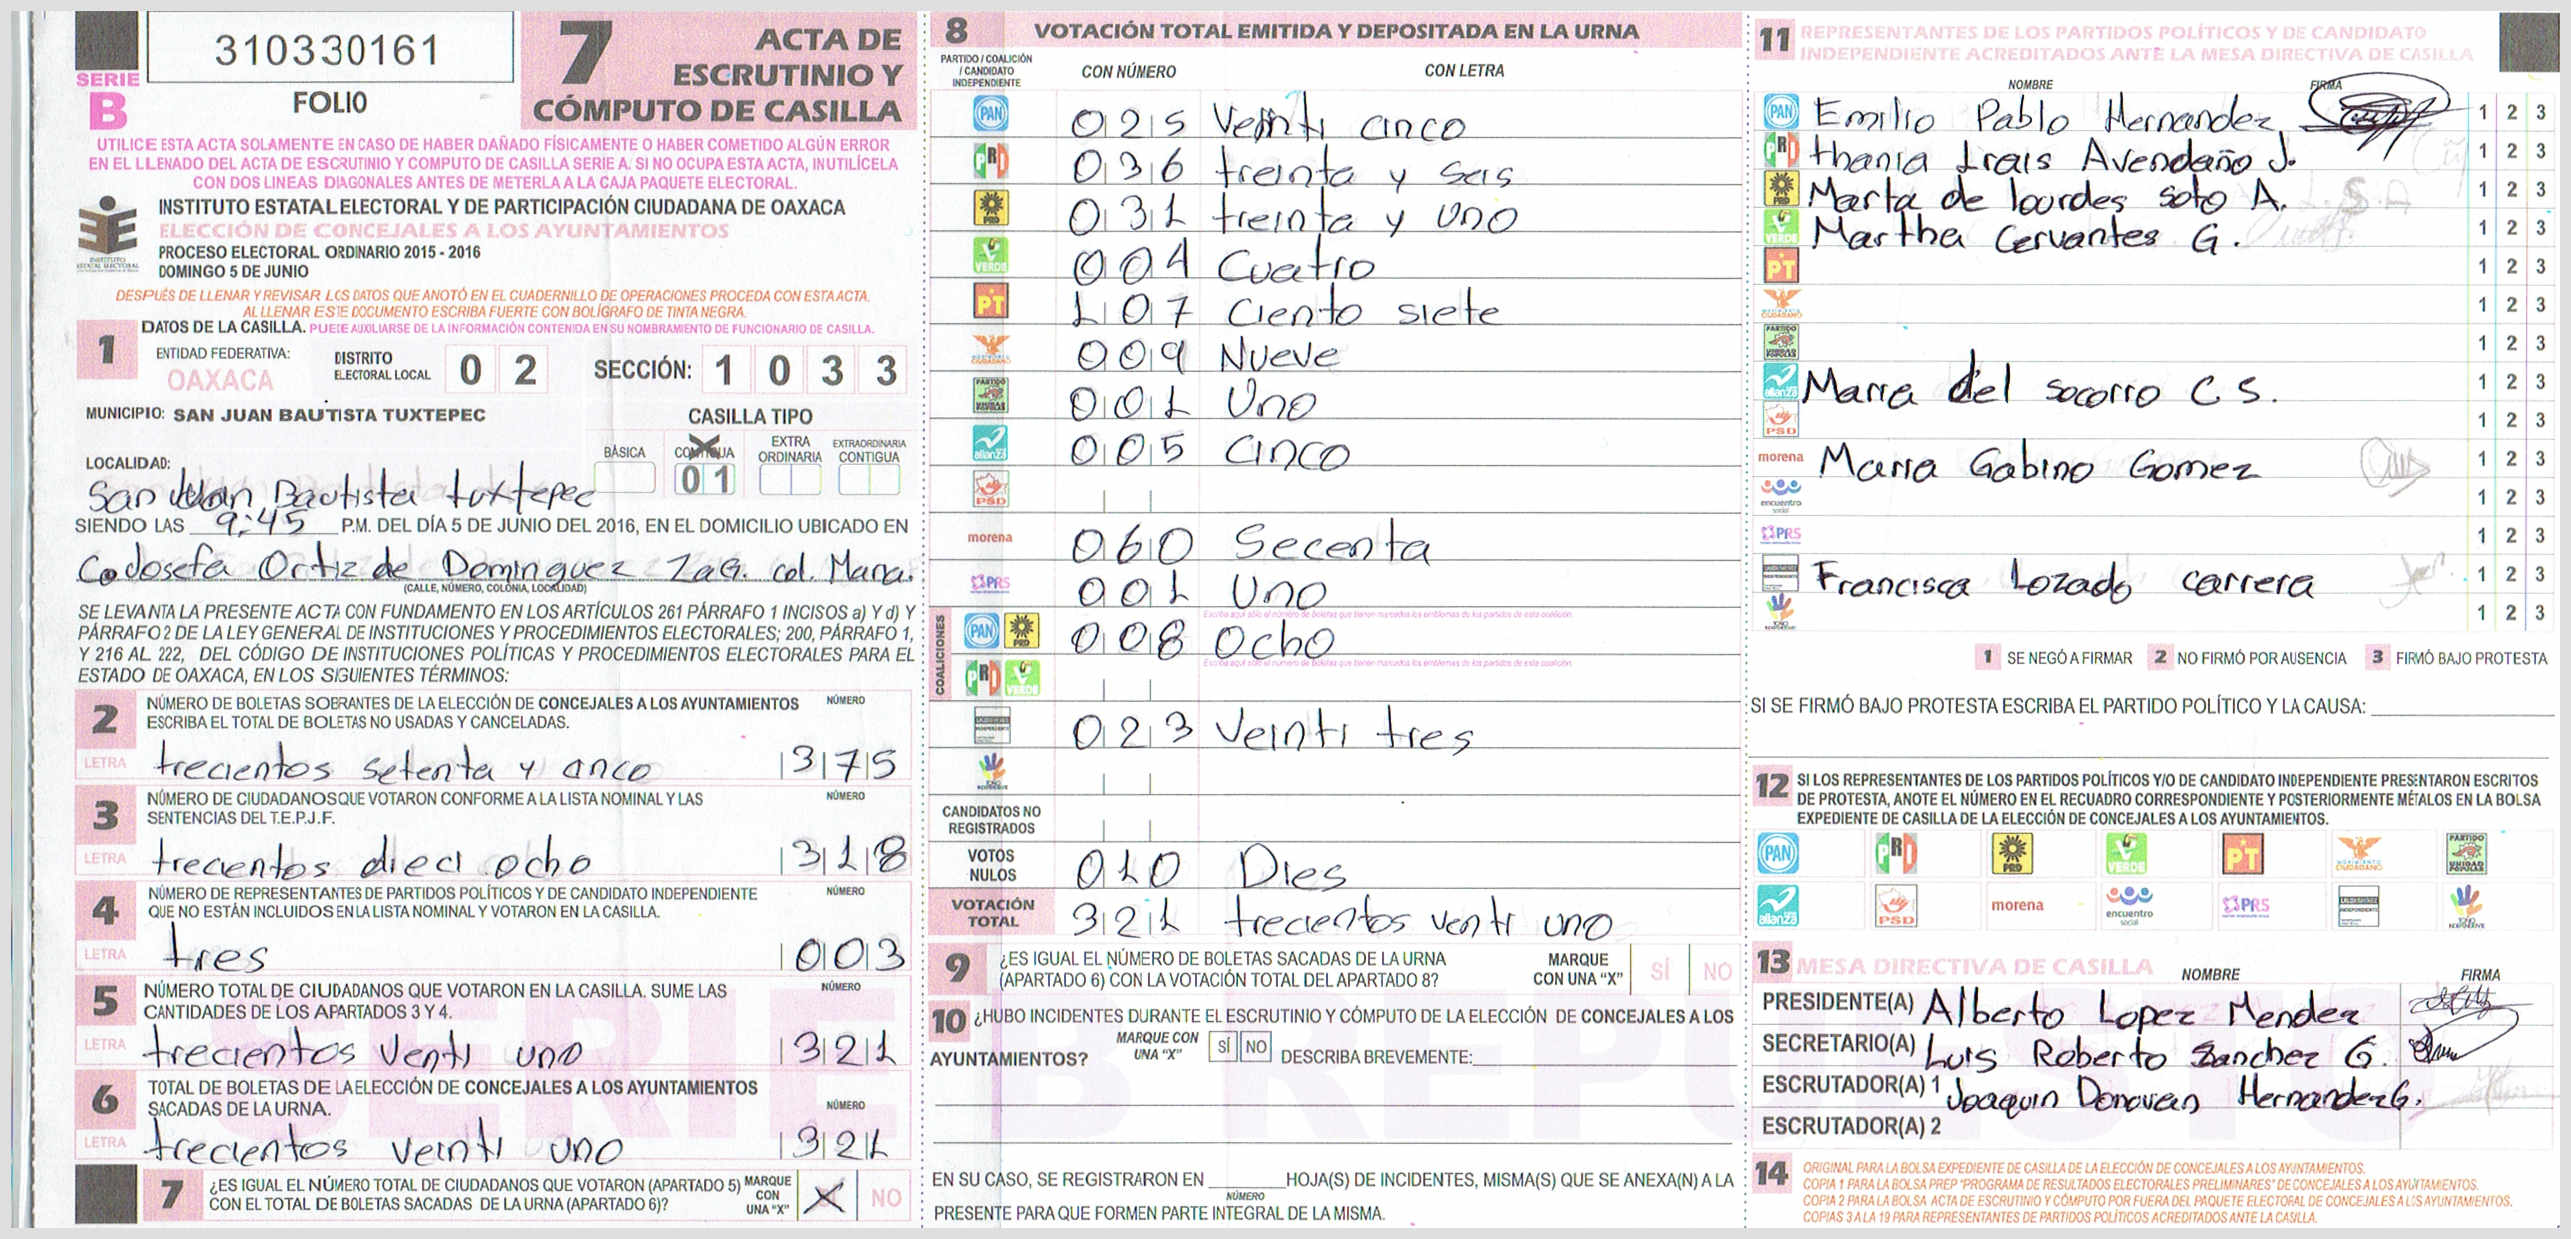 310330161
FOLIO
SERIE
B
7 ACTA DE
ESCRUTINIO Y
CÓMPUTO DE CASILLA
UTILICE ESTA ACTA SOLAMENTE EN CASO DE HABER DAÑADO FÍSICAMENTE O HABER COMETIDO ALGÚN ERROR
EN EL LLENADO DEL ACTA DE ESCRUTINIO Y COMPUTO DE CASILLA SERIE A. SI NO OCUPA ESTA ACTA, INUTILÍCELA
CON DOS LINEAS DIAGONALES ANTES DE METERLA A LA CAJA PAQUETE ELECTORAL.
INSTITUTO ESTATAL ELECTORAL Y DE PARTICIPACIÓN CIUDADANA DE OAXACA
ELECCIÓN DE CONCEJALES A LOS AYUNTAMIENTOS
PROCESO ELECTORAL ORDINARIO 2015 - 2016
DOMINGO 5 DE JUNIO
DESPUÉS DE LLENAR Y REVISAR LOS DATOS QUE ANOTÓ EN EL CUADERNILLO DE OPERACIONES PROCEDA CON ESTA ACTA.
AL LLENAR ESTE DOCUMENTO ESCRIBA FUERTE CON BOLÍGRAFO DE TINTA NEGRA.
1 DATOS DE LA CASILLA. PUEDE AUXILIARSE DE LA INFORMACIÓN CONTENIDA EN SU NOMBRAMIENTO DE FUNCIONARIO DE CASILLA.
ENTIDAD FEDERATIVA: OAXACA
DISTRITO ELECTORAL LOCAL 0 2
SECCIÓN: 1 0 3 3
MUNICIPIO: SAN JUAN BAUTISTA TUXTEPEC
CASILLA TIPO
BÁSICA CONTIGUA EXTRA ORDINARIA EXTRAORDINARIA CONTIGUA
01
LOCALIDAD:
San Juan Bautista tuxtepec
SIENDO LAS 9:45 P.M. DEL DÍA 5 DE JUNIO DEL 2016, EN EL DOMICILIO UBICADO EN
Ortiz de Dominguez col. Maria.
(CALLE, NÚMERO, COLONIA, LOCALIDAD)
SE LEVANTA LA PRESENTE ACTA CON FUNDAMENTO EN LOS ARTÍCULOS 261 PÁRRAFO 1 INCISOS a) Y d) Y
PÁRRAFO 2 DE LA LEY GENERAL DE INSTITUCIONES Y PROCEDIMIENTOS ELECTORALES; 200, PÁRRAFO 1,
Y 216 AL 222, DEL CÓDIGO DE INSTITUCIONES POLÍTICAS Y PROCEDIMIENTOS ELECTORALES PARA EL
ESTADO DE OAXACA, EN LOS SIGUIENTES TÉRMINOS:
2 NÚMERO DE BOLETAS SOBRANTES DE LA ELECCIÓN DE CONCEJALES A LOS AYUNTAMIENTOS NÚMERO
ESCRIBA EL TOTAL DE BOLETAS NO USADAS Y CANCELADAS.
LETRA trecientos setenta y cinco 375
3 NÚMERO DE CIUDADANOS QUE VOTARON CONFORME A LA LISTA NOMINAL Y LAS NÚMERO
SENTENCIAS DEL T.E.P.J.F.
LETRA trecientos dieci ocho 318
4 NÚMERO DE REPRESENTANTES DE PARTIDOS POLÍTICOS Y DE CANDIDATO INDEPENDIENTE NÚMERO
QUE NO ESTÁN INCLUIDOS EN LA LISTA NOMINAL Y VOTARON EN LA CASILLA.
LETRA tres 003
5 NÚMERO TOTAL DE CIUDADANOS QUE VOTARON EN LA CASILLA. SUME LAS NÚMERO
CANTIDADES DE LOS APARTADOS 3 Y 4.
LETRA trecientos venti uno 321
6 TOTAL DE BOLETAS DE LA ELECCIÓN DE CONCEJALES A LOS AYUNTAMIENTOS
SACADAS DE LA URNA. NÚMERO
LETRA trecientos veinti uno 321
7 ¿ES IGUAL EL NÚMERO TOTAL DE CIUDADANOS QUE VOTARON (APARTADO 5)
CON EL TOTAL DE BOLETAS SACADAS DE LA URNA (APARTADO 6)? MARQUE CON UNA "X" X NO
8 VOTACIÓN TOTAL EMITIDA Y DEPOSITADA EN LA URNA
PARTIDO / COALICIÓN / CANDIDATO INDEPENDIENTE CON NÚMERO CON LETRA
PAN 025 Veinti cinco
PRI 036 treinta y seis
PRD 031 treinta y uno
VERDE 004 Cuatro
PT 107 Ciento siete
MOVIMIENTO CIUDADANO 009 Nueve
PARTIDO UNIDAD POPULAR 001 Uno
alianza 005 Cinco
PSD
morena 060 Secenta
PRS 001 Uno
COALICIONES
Escriba aquí sólo el número de boletas que tienen marcados los emblemas de los partidos de esta coalición.
PAN PRD 008 Ocho
Escriba aquí sólo el número de boletas que tienen marcados los emblemas de los partidos de esta coalición.
PRI VERDE
INDEPENDIENTE 023 Veinti tres
CANDIDATOS NO REGISTRADOS
VOTOS NULOS 010 Dies
VOTACIÓN TOTAL 321 trecientos venti uno
9 ¿ES IGUAL EL NÚMERO DE BOLETAS SACADAS DE LA URNA
(APARTADO 6) CON LA VOTACIÓN TOTAL DEL APARTADO 8? MARQUE CON UNA "X" SÍ NO
10 ¿HUBO INCIDENTES DURANTE EL ESCRUTINIO Y CÓMPUTO DE LA ELECCIÓN DE CONCEJALES A LOS
AYUNTAMIENTOS? MARQUE CON UNA "X" SÍ NO DESCRIBA BREVEMENTE:
EN SU CASO, SE REGISTRARON EN HOJA(S) DE INCIDENTES, MISMA(S) QUE SE ANEXA(N) A LA
NÚMERO
PRESENTE PARA QUE FORMEN PARTE INTEGRAL DE LA MISMA.
11 REPRESENTANTES DE LOS PARTIDOS POLÍTICOS Y DE CANDIDATO
INDEPENDIENTE ACREDITADOS ANTE LA MESA DIRECTIVA DE CASILLA
NOMBRE FIRMA
PAN Emilio Pablo Hernandez 1 2 3
PRI thania Irais Avendaño J. 1 2 3
PRD Marta de lourdes soto A. 1 2 3
VERDE Martha Cervantes G. 1 2 3
PT 1 2 3
MOVIMIENTO CIUDADANO 1 2 3
PARTIDO UNIDAD POPULAR 1 2 3
alianza Maria del socorro C S. 1 2 3
PSD 1 2 3
morena Maria Gabino Gomez 1 2 3
encuentro social 1 2 3
PRS 1 2 3
INDEPENDIENTE Francisca Lozado carrera 1 2 3
1 2 3
1 SE NEGÓ A FIRMAR 2 NO FIRMÓ POR AUSENCIA 3 FIRMÓ BAJO PROTESTA
SI SE FIRMÓ BAJO PROTESTA ESCRIBA EL PARTIDO POLÍTICO Y LA CAUSA:
12 SI LOS REPRESENTANTES DE LOS PARTIDOS POLÍTICOS Y/O DE CANDIDATO INDEPENDIENTE PRESENTARON ESCRITOS
DE PROTESTA, ANOTE EL NÚMERO EN EL RECUADRO CORRESPONDIENTE Y POSTERIORMENTE MÉTALOS EN LA BOLSA
EXPEDIENTE DE CASILLA DE LA ELECCIÓN DE CONCEJALES A LOS AYUNTAMIENTOS.
PAN PRI PRD VERDE PT MOVIMIENTO CIUDADANO PARTIDO UNIDAD POPULAR
alianza PSD morena encuentro social PRS INDEPENDIENTE
13 MESA DIRECTIVA DE CASILLA NOMBRE FIRMA
PRESIDENTE(A) Alberto Lopez Mendez
SECRETARIO(A) Luis Roberto Sanchez G.
ESCRUTADOR(A) 1 Joaquin Donovan Hernandez G.
ESCRUTADOR(A) 2
14 ORIGINAL PARA LA BOLSA EXPEDIENTE DE CASILLA DE LA ELECCIÓN DE CONCEJALES A LOS AYUNTAMIENTOS.
COPIA 1 PARA LA BOLSA PREP "PROGRAMA DE RESULTADOS ELECTORALES PRELIMINARES" DE CONCEJALES A LOS AYUNTAMIENTOS.
COPIA 2 PARA LA BOLSA ACTA DE ESCRUTINIO Y CÓMPUTO POR FUERA DEL PAQUETE ELECTORAL DE CONCEJALES A LOS AYUNTAMIENTOS.
COPIAS 3 A LA 19 PARA REPRESENTANTES DE PARTIDOS POLÍTICOS ACREDITADOS ANTE LA CASILLA.